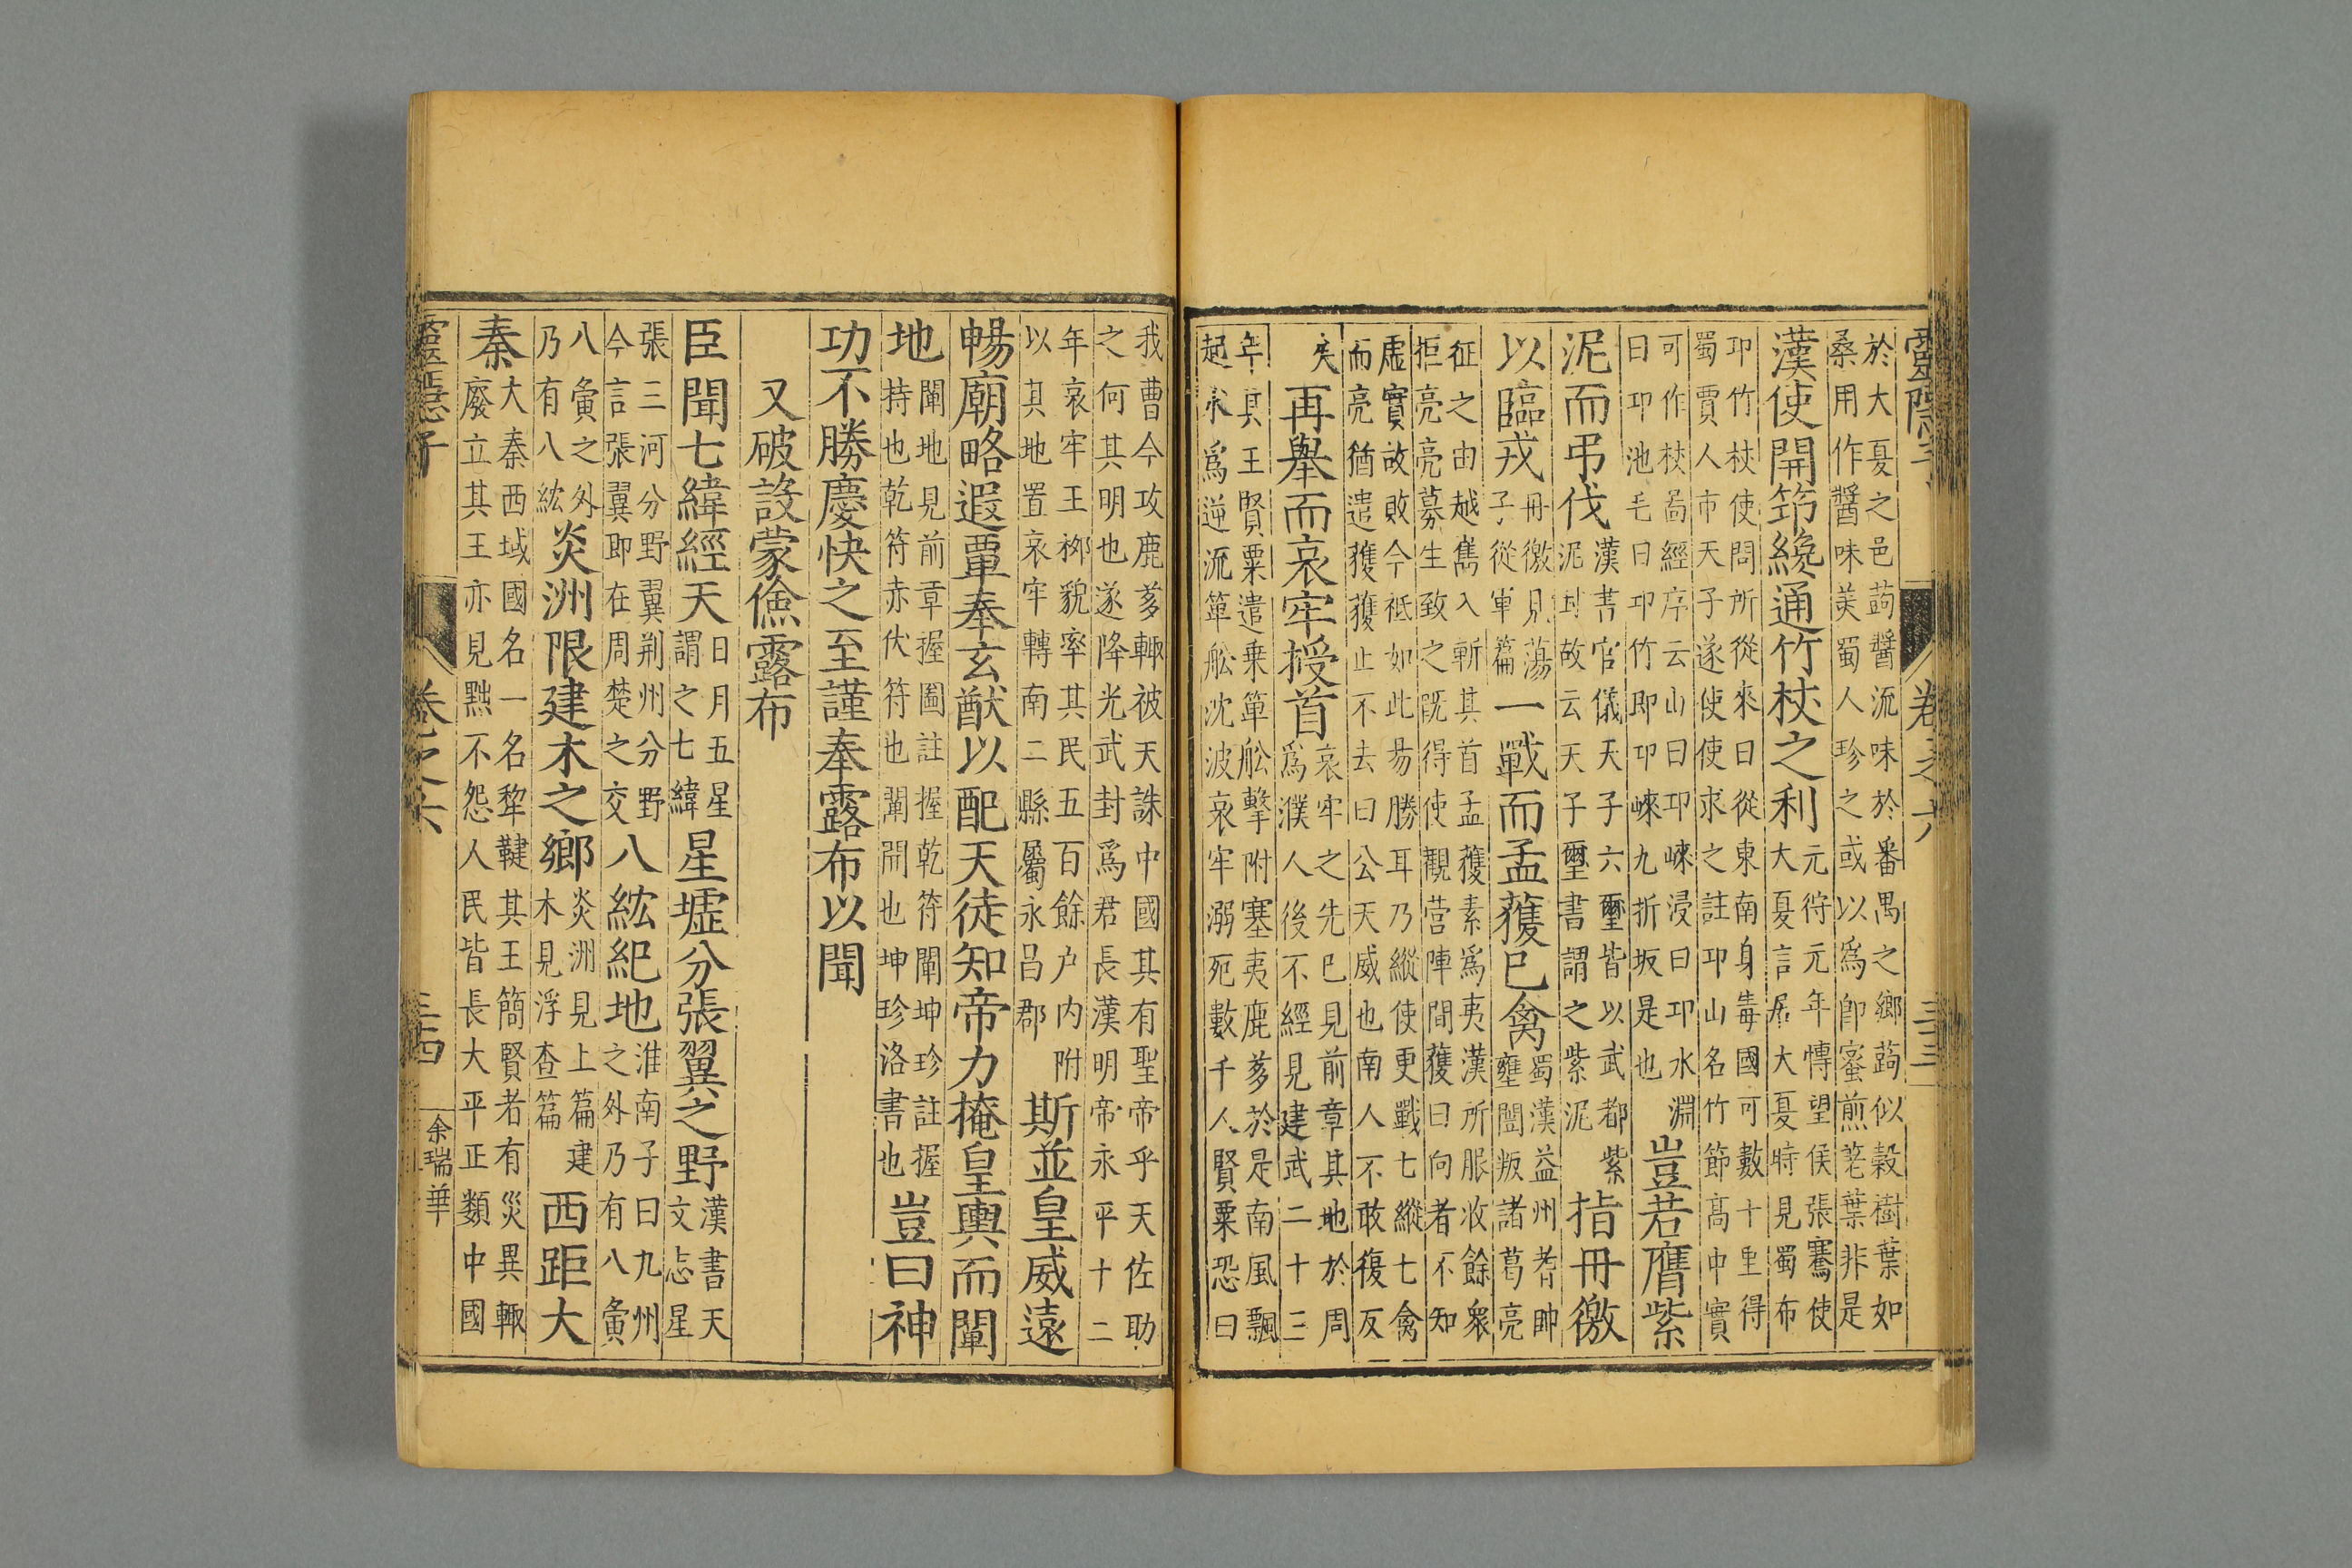 靈隱子 卷之六 三三
於大夏之邑蒟醬流味於番禺之鄉蒟似榖樹葉如
桑用作醬味美蜀人珍之或以爲卽蜜煎荖葉非是
漢使開笻纔通竹杖之利元狩元年愽望侯張騫使
大夏言居大夏時見蜀布
卭竹杖使問所從來曰從東南身毒國可數十里得
蜀賈人市天子遂使使求之註卭山名竹節高中實
可作杖曷經序云山曰卭崍浸曰卭水淵
曰卭池毛曰卭竹即卭崍九折坂是也豈若膺紫
泥而弔伐漢書官儀天子六璽皆以武都紫
泥封故云天子璽書謂之紫泥指冊徼
以臨戎冊徼見蕩
子從軍篇一戰而孟蒦巳禽蜀漢益州耆帥
壅闓叛諸葛亮
征之由越嶲入斬其首孟蒦素爲夷漢所服收餘衆
拒亮亮募生致之既得使觀营陣間獲曰向者不知
虛實故敗今祗如此昜勝耳乃縱使更戰七縱七禽
而亮猶遣獲獲止不去曰公天威也南人不敢復反
矣再舉而哀牢授首哀牢之先巳見前章其地於周
爲濮人後不經見建武二十三
年其王賢粟遣乗箄舩擊附塞夷鹿茤於是南風飄
起水爲逆流箄舩沈波哀牢溺死數千人賢粟恐曰
我曹今攻鹿茤輙被天誅中國其有聖帝乎天佐助
之何其明也遂降光武封爲君長漢明帝永平十二
年哀牢王栁貌率其民五百餘户内附
以其地置哀牢轉南二縣屬永吕郡斯並皇威遠
暢廟略遐覃奉玄猷以配天徒知帝力掩皇輿而闡
地闡地見前章握圖註握乾符闡坤珍註握
持也乾符赤伏符也闡開也坤珍洛書也豈曰神
功不勝慶快之至謹奉露布以聞
又破設蒙儉露布
臣聞七緯經天日月五星
謂之七緯星墟分張翼之野漢書天
文志星
張三河分野翼荆州分野
今言張翼即在周楚之交八紘紀地淮南子曰九州
之外乃有八夤
八夤之外
乃有八紘炎洲限建木之鄉炎洲見上篇建
木見浮查篇西距大
秦大秦西域國名一名犂鞬其王簡賢者有災異輙
廢立其王亦見黜不怨人民皆長大平正類中國
靈隱子 卷之六 三四 余瑞華